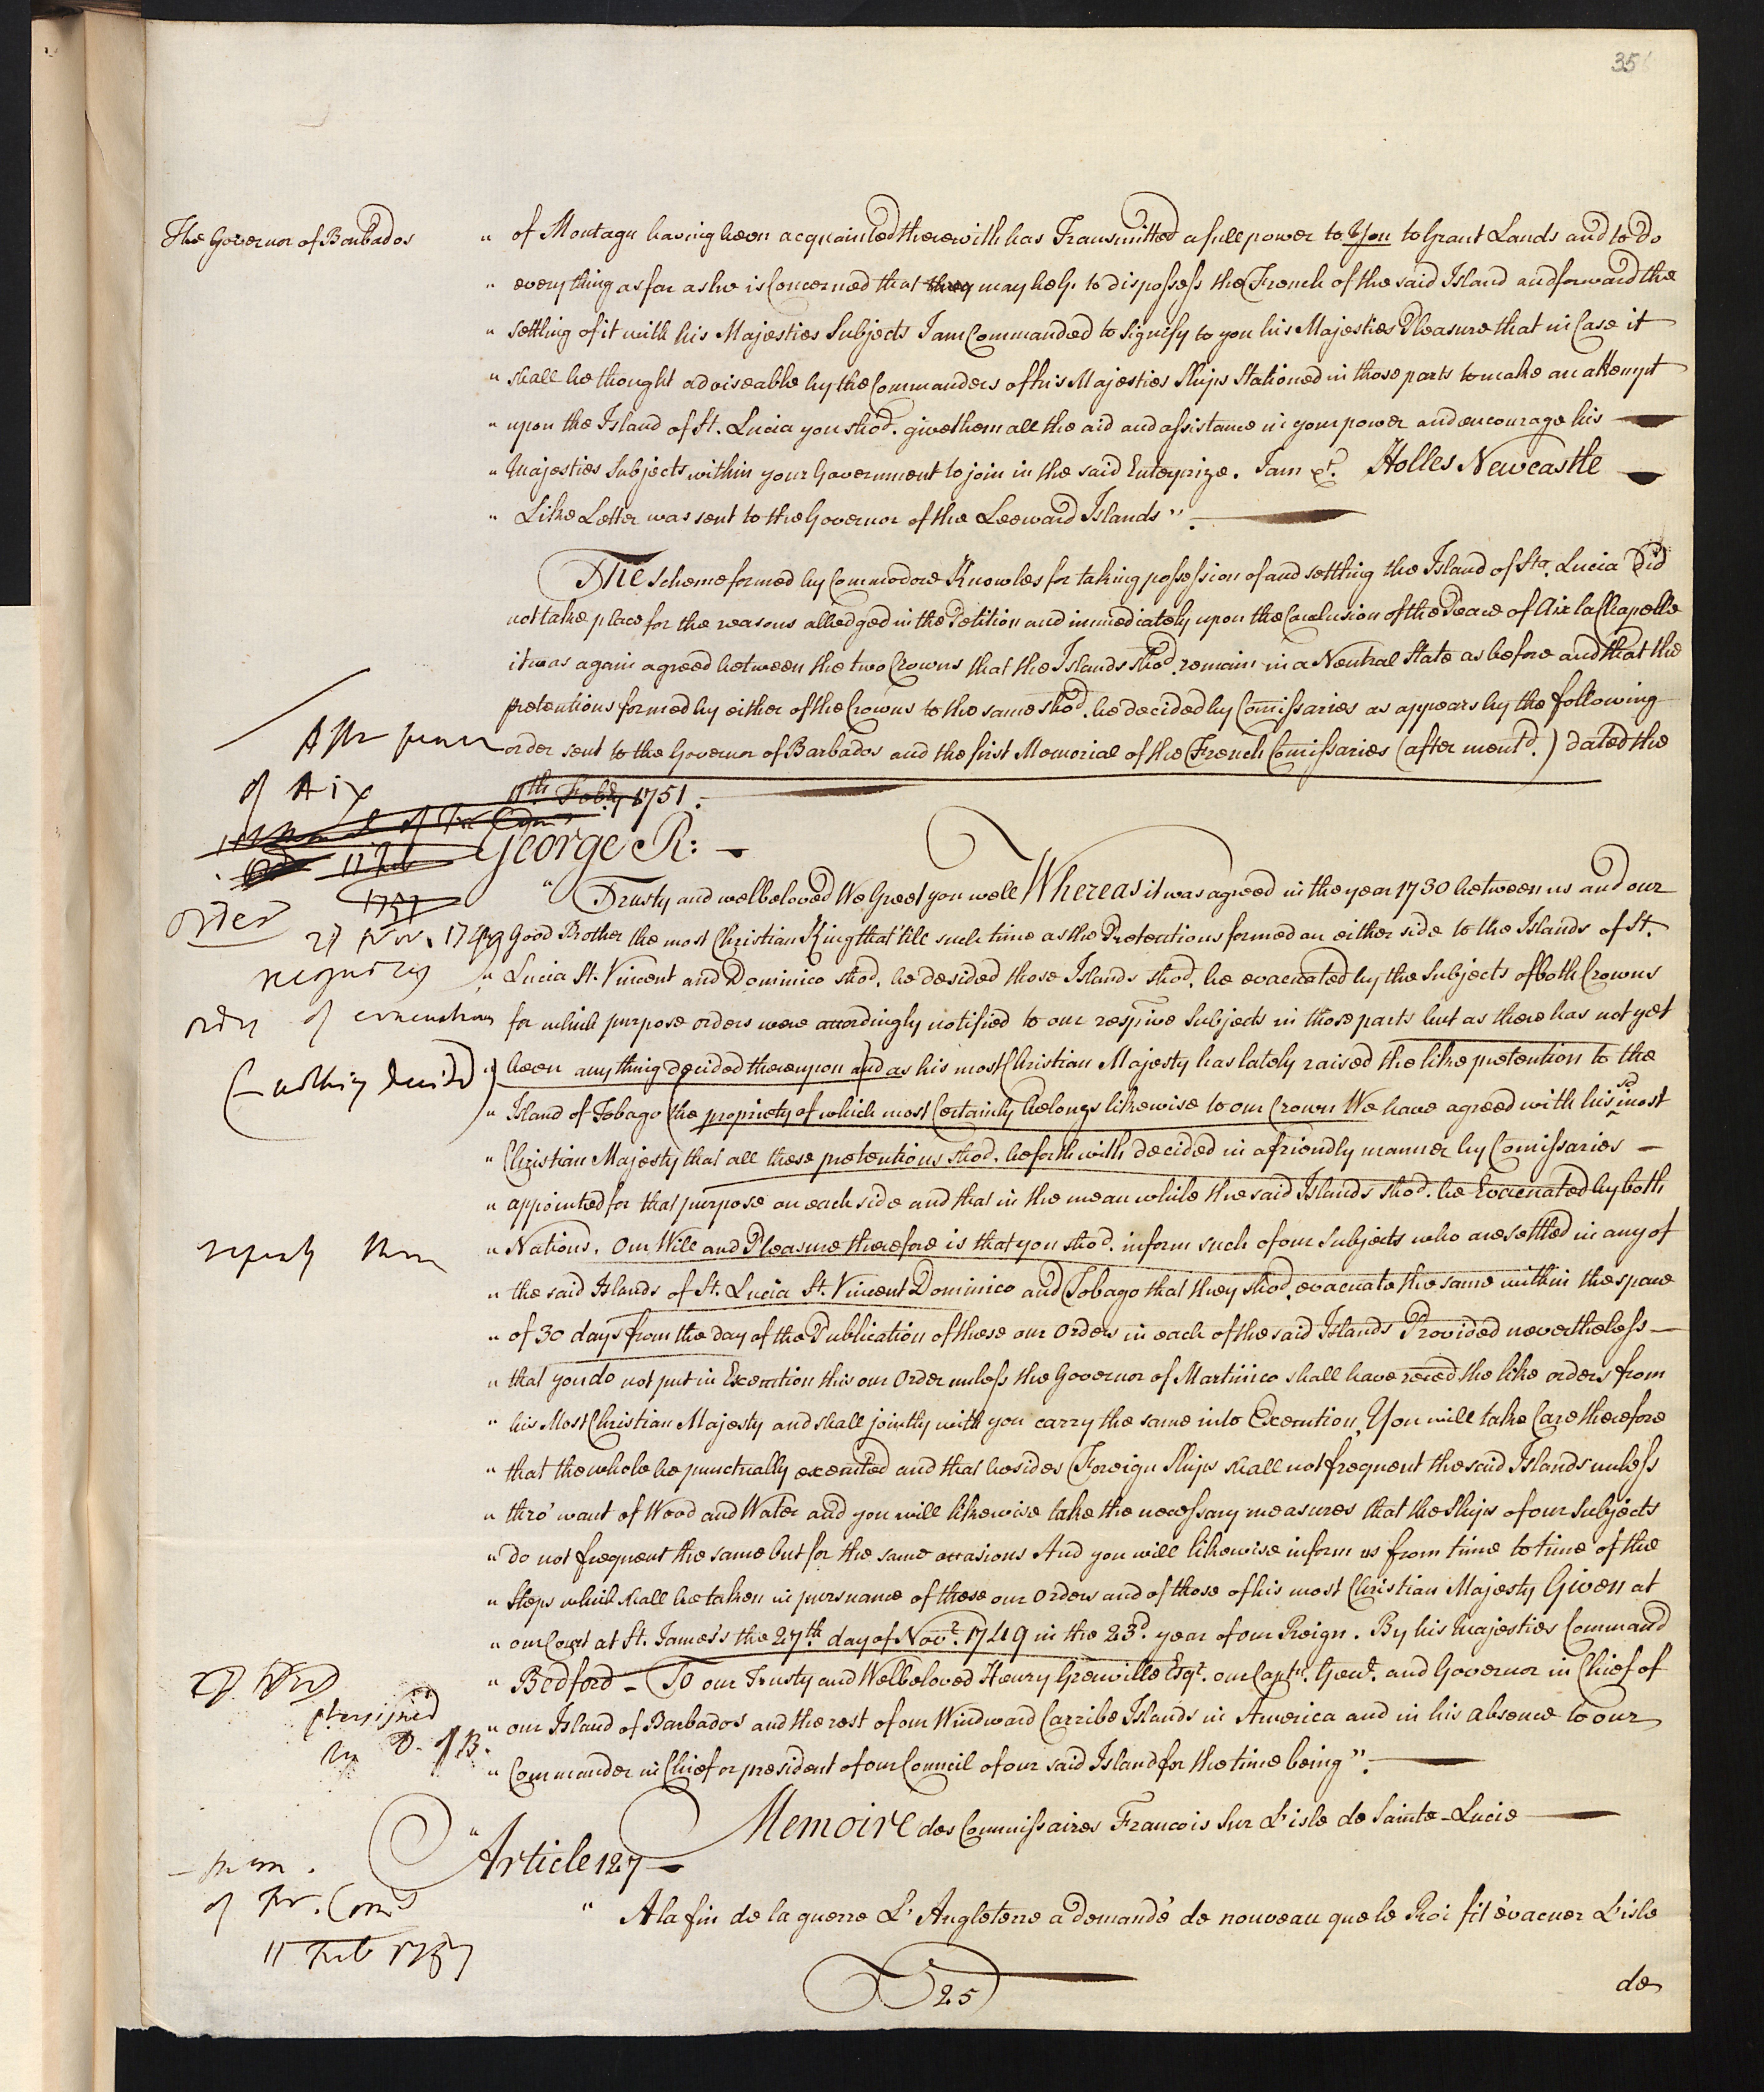 35
The Governor of Barbados
" of Montagu having been acquainted therewith has Transmitted a full power to You to Grant Lands and to do
" every thing as far as he is Concerned that they may help to dispossess the French of the said Island and forward the
" settling of it with his Majesties Subjects I am Commanded to Signify to you his Majesties Pleasure that in Case it
" shall be thought adviseable by the Commanders of his Majesties Ships Stationed in those parts to make an attempt
" upon the Island of St. Lucia you shod. give them all the aid and assistance in your power and encourage his
" Majesties Subjects within your Government to join in the said Enterprize. I am &c. Holles Newcastle
" Like Letter was sent to the Governor of the Leeward Islands".
The Scheme formed by Commodore Knowles for taking possession of and settling the Island of Sta. Lucia did
not take place for the reasons alledged in the Petition and immediately upon the Conclusion of the Peace of Aix la Chapelle
it was again agreed between the two Crowns that the Islands shod. remain in a Neutral State as before and that the
pretentions formed by either of the Crowns to the same shod. be decided by Comissaries as appears by the following
order sent to the Governor of Barbados and the first Memorial of the French Comissaries (after mentd.) dated the
11th. Feby. 1751.
of Aix
11 Feb
1751
George R:
" Trusty and welbeloved We Greet you well Whereas it was agreed in the year 1730 between us and our
order
27 Nov. 1749
" Good Brother the most Christian King that 'till such time as the Pretentions formed on either side to the Islands of St.
" Lucia St. Vincent and Dominico shod. be desided those Islands shod. be evacuated by the Subjects of both Crowns
of evacuation
for which purpose orders were accordingly notified to our respive Subjects in those parts but as there has not yet
(nothing decided)
" been any thing decided thereupon and as his most Christian Majesty has lately raised the like pretention to the
" Island of Tobago (the propriety of which most Certainly belongs likewise to our Crown We have agreed with his sd most
" Christian Majesty that all these pretentions shod. be forthwith decided in a friendly manner by Comissaries
" appointed for that purpose on each side and that in the mean while the said Islands shod. be Evacuated by both
" Nations. Our Will and Pleasure therefore is that you shod. inform such of our Subjects who are settled in any of
" the said Islands of St. Lucia St. Vincent Dominico and Tobago that they shod. evacuate the same within the space
" of 30 days from the day of the Publication of these our Orders in each of the said Islands Provided nevertheless
" that you do not put in Execution this our Order unless the Governor of Martinico shall have reced the like orders from
" his Most Christian Majesty and shall jointly with you carry the same into Execution, You will take Care therefore
" that the whole be punctually executed and that besides Foreign Ships shall not frequent the said Islands unless
" thro' want of Wood and Water and you will likewise take the necessary measures that the Ships of our Subjects
" do not frequent the same but for the same occasions And you will likewise inform us from time to time of the
" Steps which shall be taken in pursuance of these our Orders and of those of his most Christian Majesty Given at
" our Court at St. James's the 27th. day of Novr. 1749 in the 23d. year of our Reign. By his Majesties Command
" Bedford - To our Trusty and Welbeloved Henry Grenville Esqr. our Captn. Genl. and Governor in Chief of
" our Island of Barbados and the rest of our Windward Carribe Islands in America and in his absence to our
D. of B.
" Commander in Chief or president of our Council of our said Island for the time being".
Memoire des Commissaires Francois Sur L'isle de Sainte-Lucie
" Article 127
- mem.
of Fr. Coms
11 Feb 1751
" A la fin de la guerre L'Angleterre a demandé de nouveau que le Roi fit évacuer L'isle
25
de